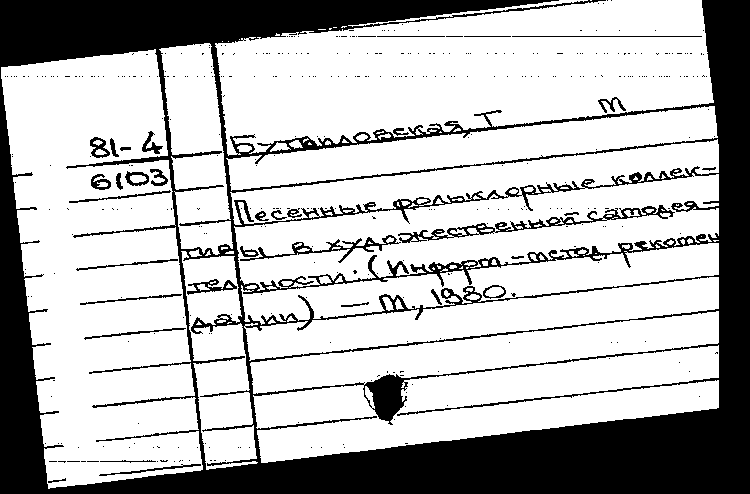 81-4
6103
Бутаиловская, Т М
Песенные фольклорные коллек-
тивы в художественной самодея-
тельности: (Информ.-метод. рекомен
дации). — М., 1980.